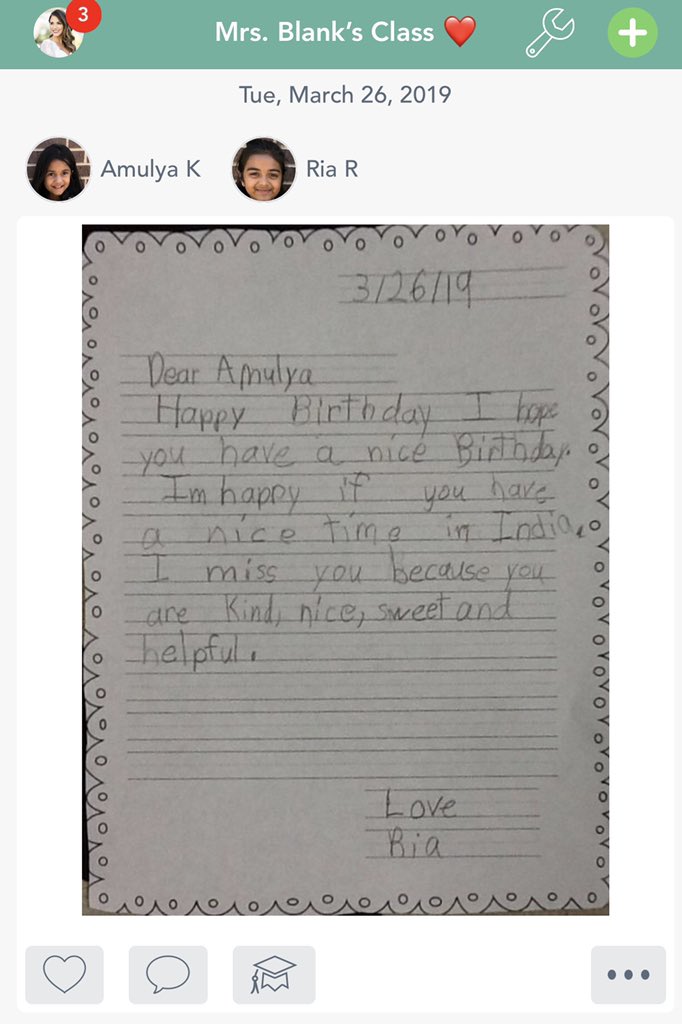 3
Mrs. Blank’s Class ❤️
Tue, March 26, 2019
Amulya K
Ria R
3/26/19
Dear Amulya
Happy Birthday I hope
you have a nice Birthday.
Im happy if you have
a nice time in India.
I miss you because you
are Kind, nice, sweet and
helpful.
Love
Ria